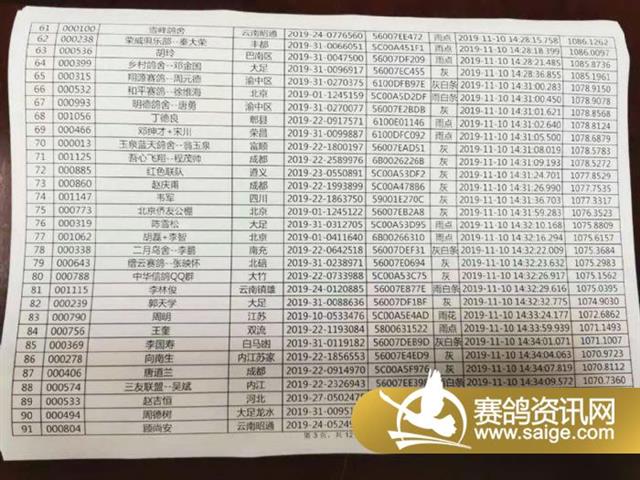 61 000100 雪峰鸽舍 云南昭通 2019-24-0776560 56007EE472 雨点 2019-11-10 14:28:15.758 1086.1262
62 000238 荣威俱乐部--秦大荣 丰都 2019-31-0066051 5C00A451F1 雨点 2019-11-10 14:28:18.399 1086.0097
63 000536 胡玲 巴南区 2019-31-0047500 56007DF209 雨点 2019-11-10 14:28:21.485 1085.8736
64 000399 乡村鸽舍--邓金国 大足 2019-31-0096917 56007EC455 灰 2019-11-10 14:28:36.855 1085.1961
65 000315 翔潭赛鸽--周元德 渝中区 2019-31-0270375 6100DFB97E 灰 2019-11-10 14:31:00.283 1078.9150
66 000532 和平赛鸽--徐维海 北京 2019-01-1245159 5C00A5D2DF 灰白条 2019-11-10 14:31:00.450 1078.9078
67 000993 明德鸽舍--唐勇 渝中区 2019-31-0270077 56007E2BDB 灰 2019-11-10 14:31:01.257 1078.8568
68 001056 丁德良 郫县 2019-22-0917571 6100E01146 雨点 2019-11-10 14:31:02.640 1078.8124
69 000466 邓绅才+宋川 荣昌 2019-31-0099887 6100DFC092 雨点 2019-11-10 14:31:05.500 1078.6879
70 000013 玉泉蓝天鸽舍--翁玉泉 富顺 2019-22-1800197 56007EAD51 灰 2019-11-10 14:31:08.201 1078.5703
71 001125 吾心飞翔--程茂帅 成都 2019-22-2589976 6B0026226B 灰 2019-11-10 14:31:09.193 1078.5272
72 000885 红色联队 遵义 2019-23-0550891 5C00A53DF2 灰 2019-11-10 14:31:26.413 1077.7783
73 000860 赵庆甫 成都 2019-22-1993899 5C00A478B6 灰 2019-11-10 14:31:26.971 1077.7535
74 001147 韦军 四川 2019-22-1863757 59001E270C 灰 2019-11-10 14:31:36.641 1077.3337
75 000773 北京侨友公棚 北京 2019-01-1245122 56007EB2A8 灰 2019-11-10 14:31:59.283 1076.3523
76 000319 陈雪松 大足 2019-31-0312702 5C00A53D95 雨点 2019-11-10 14:32:10.168 1075.8809
77 001062 胡磊+李智 北京 2019-01-0411640 6B00266310 雨点 2019-11-10 14:32:15.294 1075.6157
78 000338 二月鸟舍--李鹏 南充 2019-22-0642518 56007DEF31 灰白条 2019-11-10 14:32:22.009 1075.3684
79 000643 缙云赛鸽--张映怀 北碚 2019-31-0238971 56007E0694 灰 2019-11-10 14:32:23.632 1075.2983
80 000788 中华信鸽QQ群 大竹 2019-22-0733988 5C00A53C75 灰 2019-11-10 14:32:26.917 1075.1562
81 001115 李林俊 云南镇雄 2019-24-0120885 56007E877E 雨白条 2019-11-10 14:32:29.616 1075.0395
82 000239 郭天学 大足 2019-31-0088636 56007DF1BF 灰 2019-11-10 14:32:32.775 1074.9030
83 000790 周明 江苏 2019-10-0533476 5C00A5E4AD 雨花 2019-11-10 14:33:24.517 1072.6862
84 000756 王奎 双流 2019-22-1193084 5800631522 雨点 2019-11-10 14:33:59.939 1071.1493
85 000369 李国寿 白马凼 2019-31-0119182 56007DEB9D 灰白条 2019-11-10 14:34:01.071 1071.1007
86 000278 向南生 内江苏家 2019-22-1856553 56007E4ED9 灰 2019-11-10 14:34:04.087 1070.9723
87 000406 唐道兰 成都 2019-22-0914970 5C00A5F976 灰 2019-11-10 14:34:07.819 1070.8112
88 000574 三友联盟--吴斌 内江 2019-22-2326943 56007EE39 灰白条 2019-11-10 14:34:09.572 1070.7360
89 000533 赵吉恒 河北 2019-27-0502475
90 000494 周德树 大足龙水 2019-31-00951
91 000804 顾尚安 云南昭通 2019-24-05249
第 3 页，共 12
赛鸽资讯网
www.saige.com